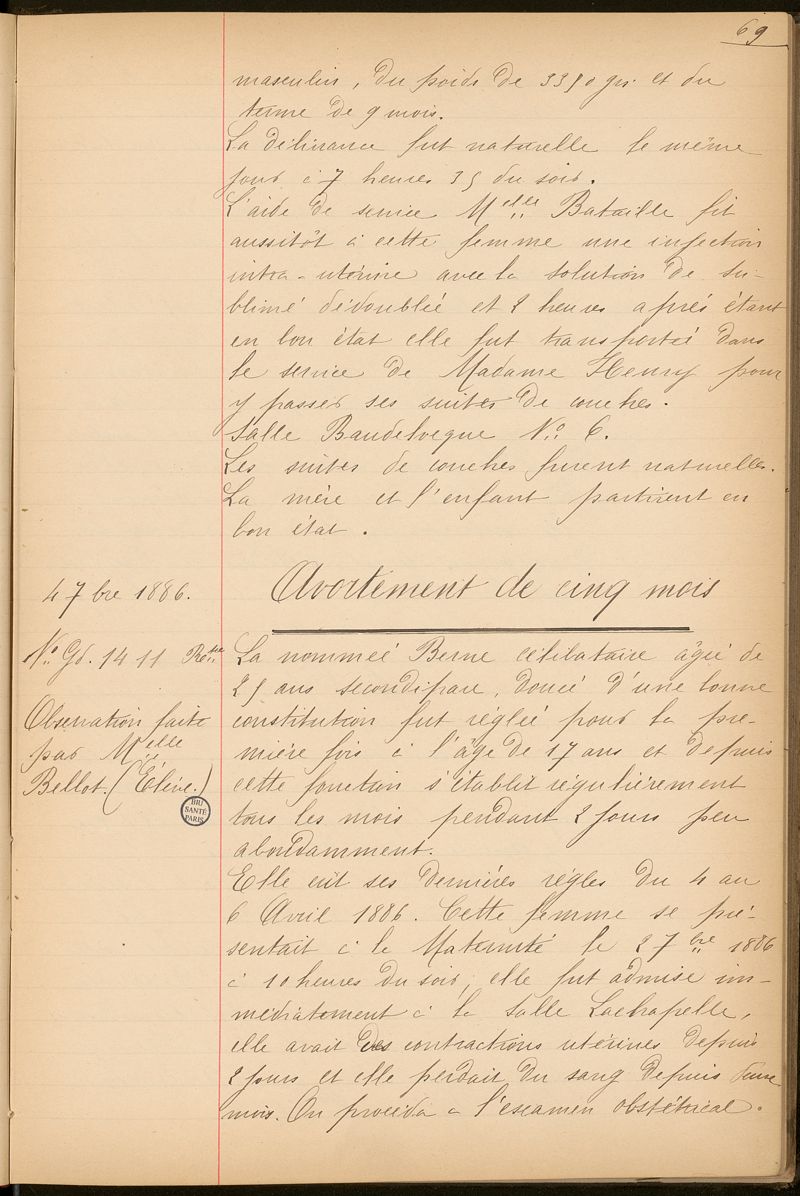 69
masculin, du poids de 3350 grs. et du
terme de 9 mois.
La délivrance fut naturelle le même
jour à 7 heures 35 du soir.
L'aide de service Melle Bataille fit
aussitôt à cette femme une infection
intra-utérine avec la solution de su-
blimé dédoublée et 2 heures après étant
en bon état elle fut transportée dans
le service de Madame Henry pour
y passer ses suites de couches.
Salle Baudelocque No. 6.
Les suites de couches furent naturelles.
La mère et l'enfant partirent en
bon état.
4 7bre 1886.
Avortement de cinq mois
No. Gd. 1411
Observation faite
par Melle
Bellot. (Élève.)
BIU
SANTÉ
PARIS
La nommée Berne célibataire âgée de
25 ans secondipare, douée d'une bonne
constitution fut réglée pour la pre-
mière fois à l'âge de 17 ans et depuis
cette fonction s'établit régulièrement
tous les mois pendant 2 jours peu
abondamment.
Elle eût ses dernières règles du 4 au
6 Avril 1886. Cette femme se pré-
sentait à la Maternité le 2 7bre 1886
à 10 heures du soir, elle fut admise im-
médiatement à la Salle Lachapelle,
elle avait des contractions utérines depuis
2 jours et elle perdait du sang depuis
mois. On procéda à l'examen obstétrical.